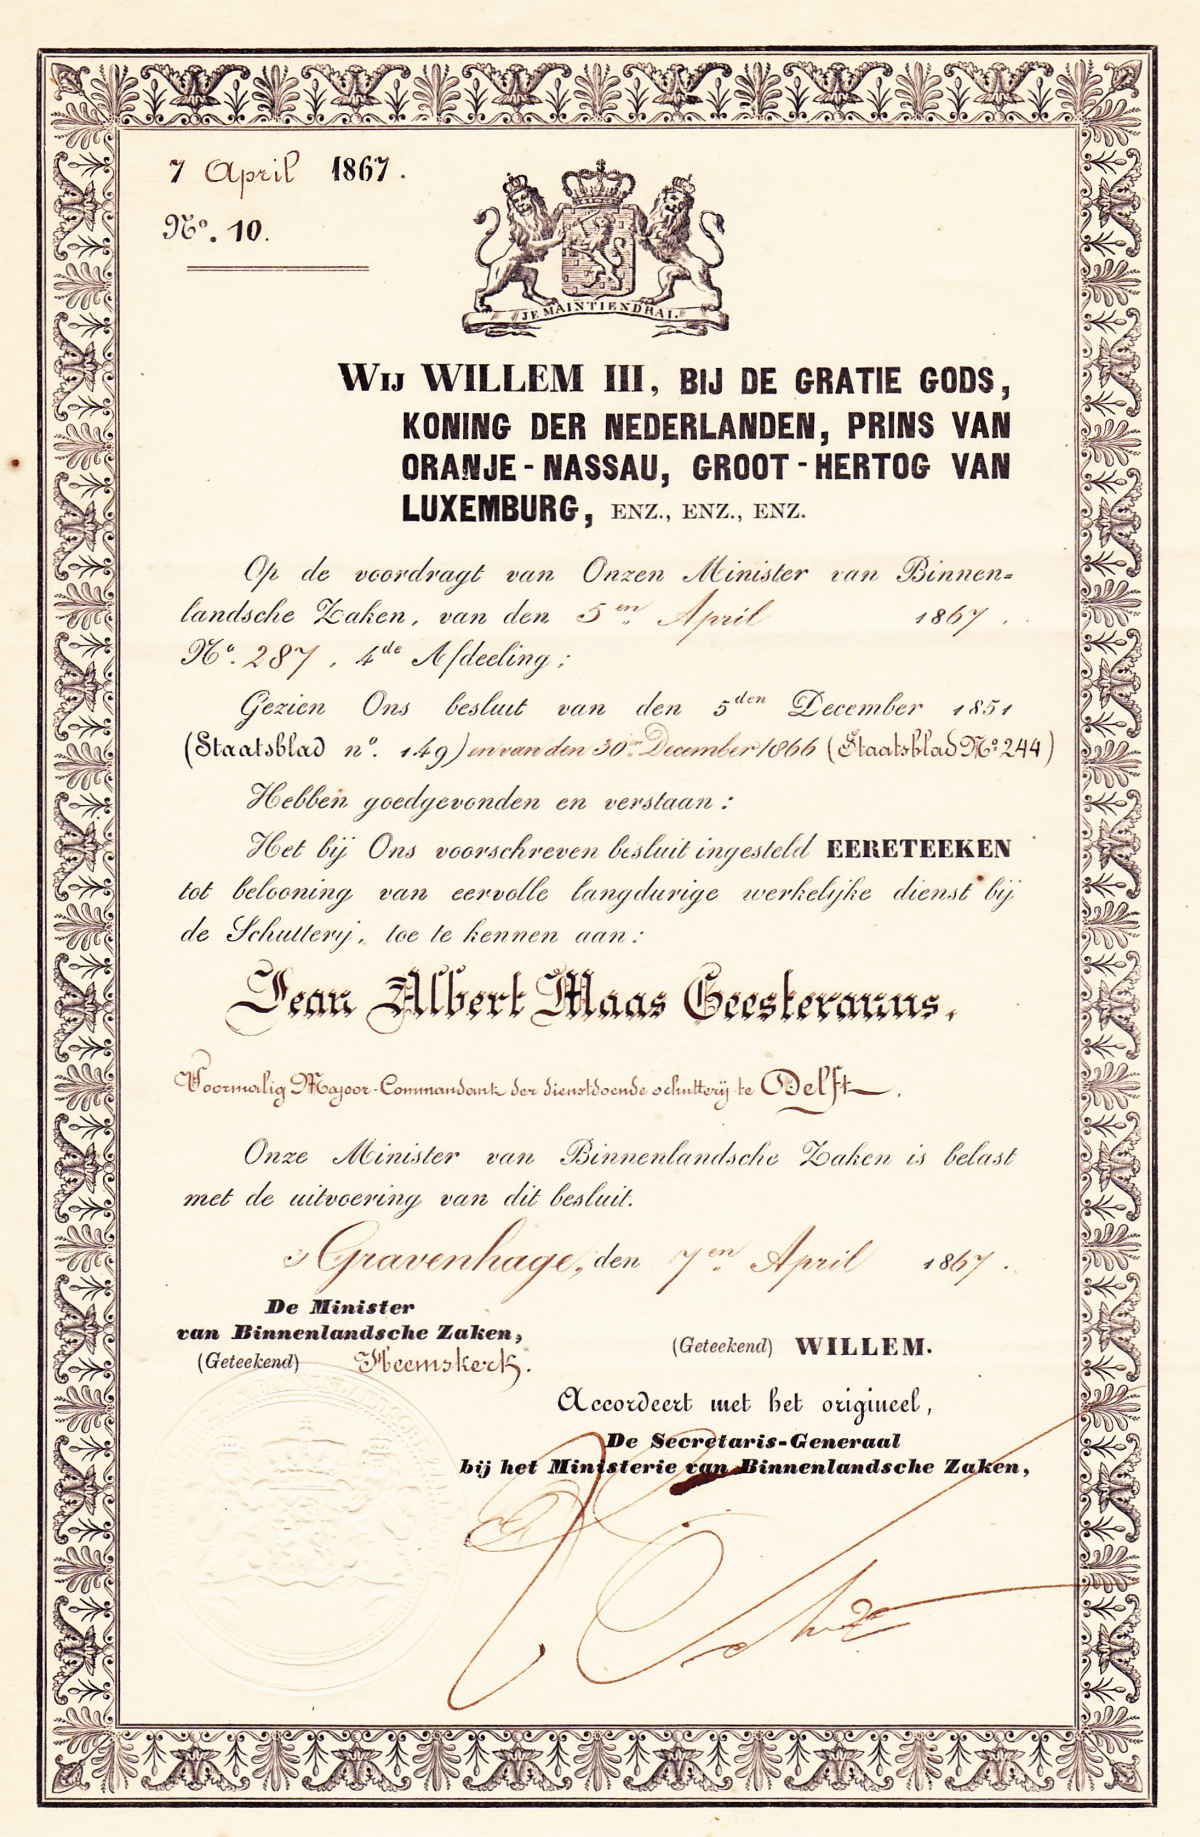 7 April 1867.
Nº. 10.
JE MAINTIENDRAI.
Wij WILLEM III, BIJ DE GRATIE GODS,
KONING DER NEDERLANDEN, PRINS VAN
ORANJE-NASSAU, GROOT-HERTOG VAN
LUXEMBURG, ENZ., ENZ., ENZ.
Op de voordragt van Onzen Minister van Binnen=
landsche Zaken, van den 5en April 1867.
Nº. 287, 4de Afdeeling;
Gezien Ons besluit van den 5den December 1851
(Staatsblad nº. 149) en van den 30en December 1866 (Staatsblad Nº 244)
Hebben goedgevonden en verstaan:
Het bij Ons voorschreven besluit ingesteld EERETEEKEN
tot belooning van eervolle langdurige werkelijke dienst bij
de Schutterij, toe te kennen aan:
Jean Albert Maas Geesteranus,
Voormalig Majoor-Commandant der dienstdoende schutterij te Delft.
Onze Minister van Binnenlandsche Zaken is belast
met de uitvoering van dit besluit.
's Gravenhage, den 7en April 1867.
De Minister
van Binnenlandsche Zaken,
(Geteekend) Heemskerk.
(Geteekend) WILLEM.
Accordeert met het origineel,
De Secretaris-Generaal
bij het Ministerie van Binnenlandsche Zaken,